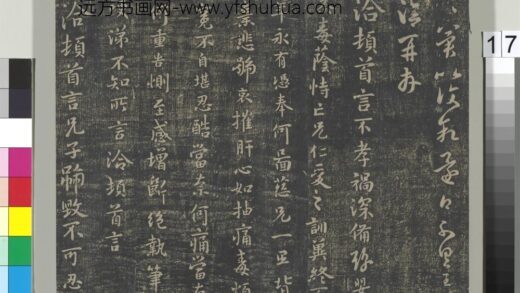 远方书画网-www.yfshuhua.com
17
洽再拜
洽頓首言不孝禍深備嬰
毒蔭恃亡兄仁愛之訓冀終
年永有憑奉何圖慈兄一旦背
棄悲號哀摧肝心如抽痛毒煩
冤不自堪忍酷當奈何痛當奈
重告惻至感增斷絕執筆
涕不知所言洽頓首言
洽頓首言兄子號毀不可忍